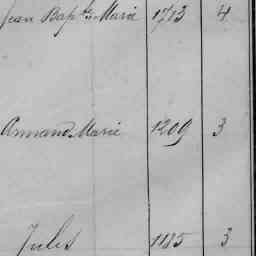 Jean Bapte Marie 1713 4
Armand Marie 1209 3
Jules 1185 3